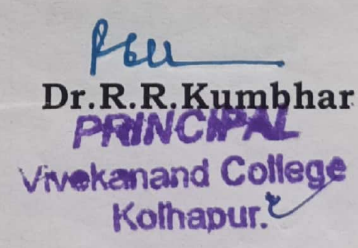 Dr.R.R.Kumbhar
PRINCIPAL
Vivekanand College
Kolhapur.